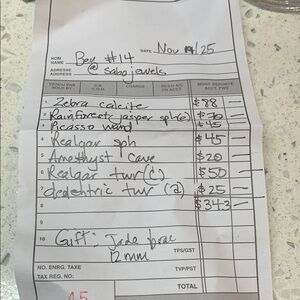 DATE Nov 19/25
NOM
NAME Bev #14
ADRESSE
ADDRESS @ Sabo jewels
VENDU PAR
SOLD BY
C.R.
C.O.D.
CHARGE
REÇU A/C
ON ACCT.
MONT. REPORTÉ
ACCT. FWD
1 Zebra calcite $88 —
2 Rainforest jasper sph(e) $70 —
3 Picasso wand $45 —
4 Realgar sph $45 —
5 Amethyst cave $20 —
6 Realgar twr (c) $50 —
7 twr (a) $25 —
8 $343 —
9
10 Gift: Jade brac
12mm
TPS/GST
NO. ENRG. TAXE
TAX REG. NO:
TVP/PST
TOTAL